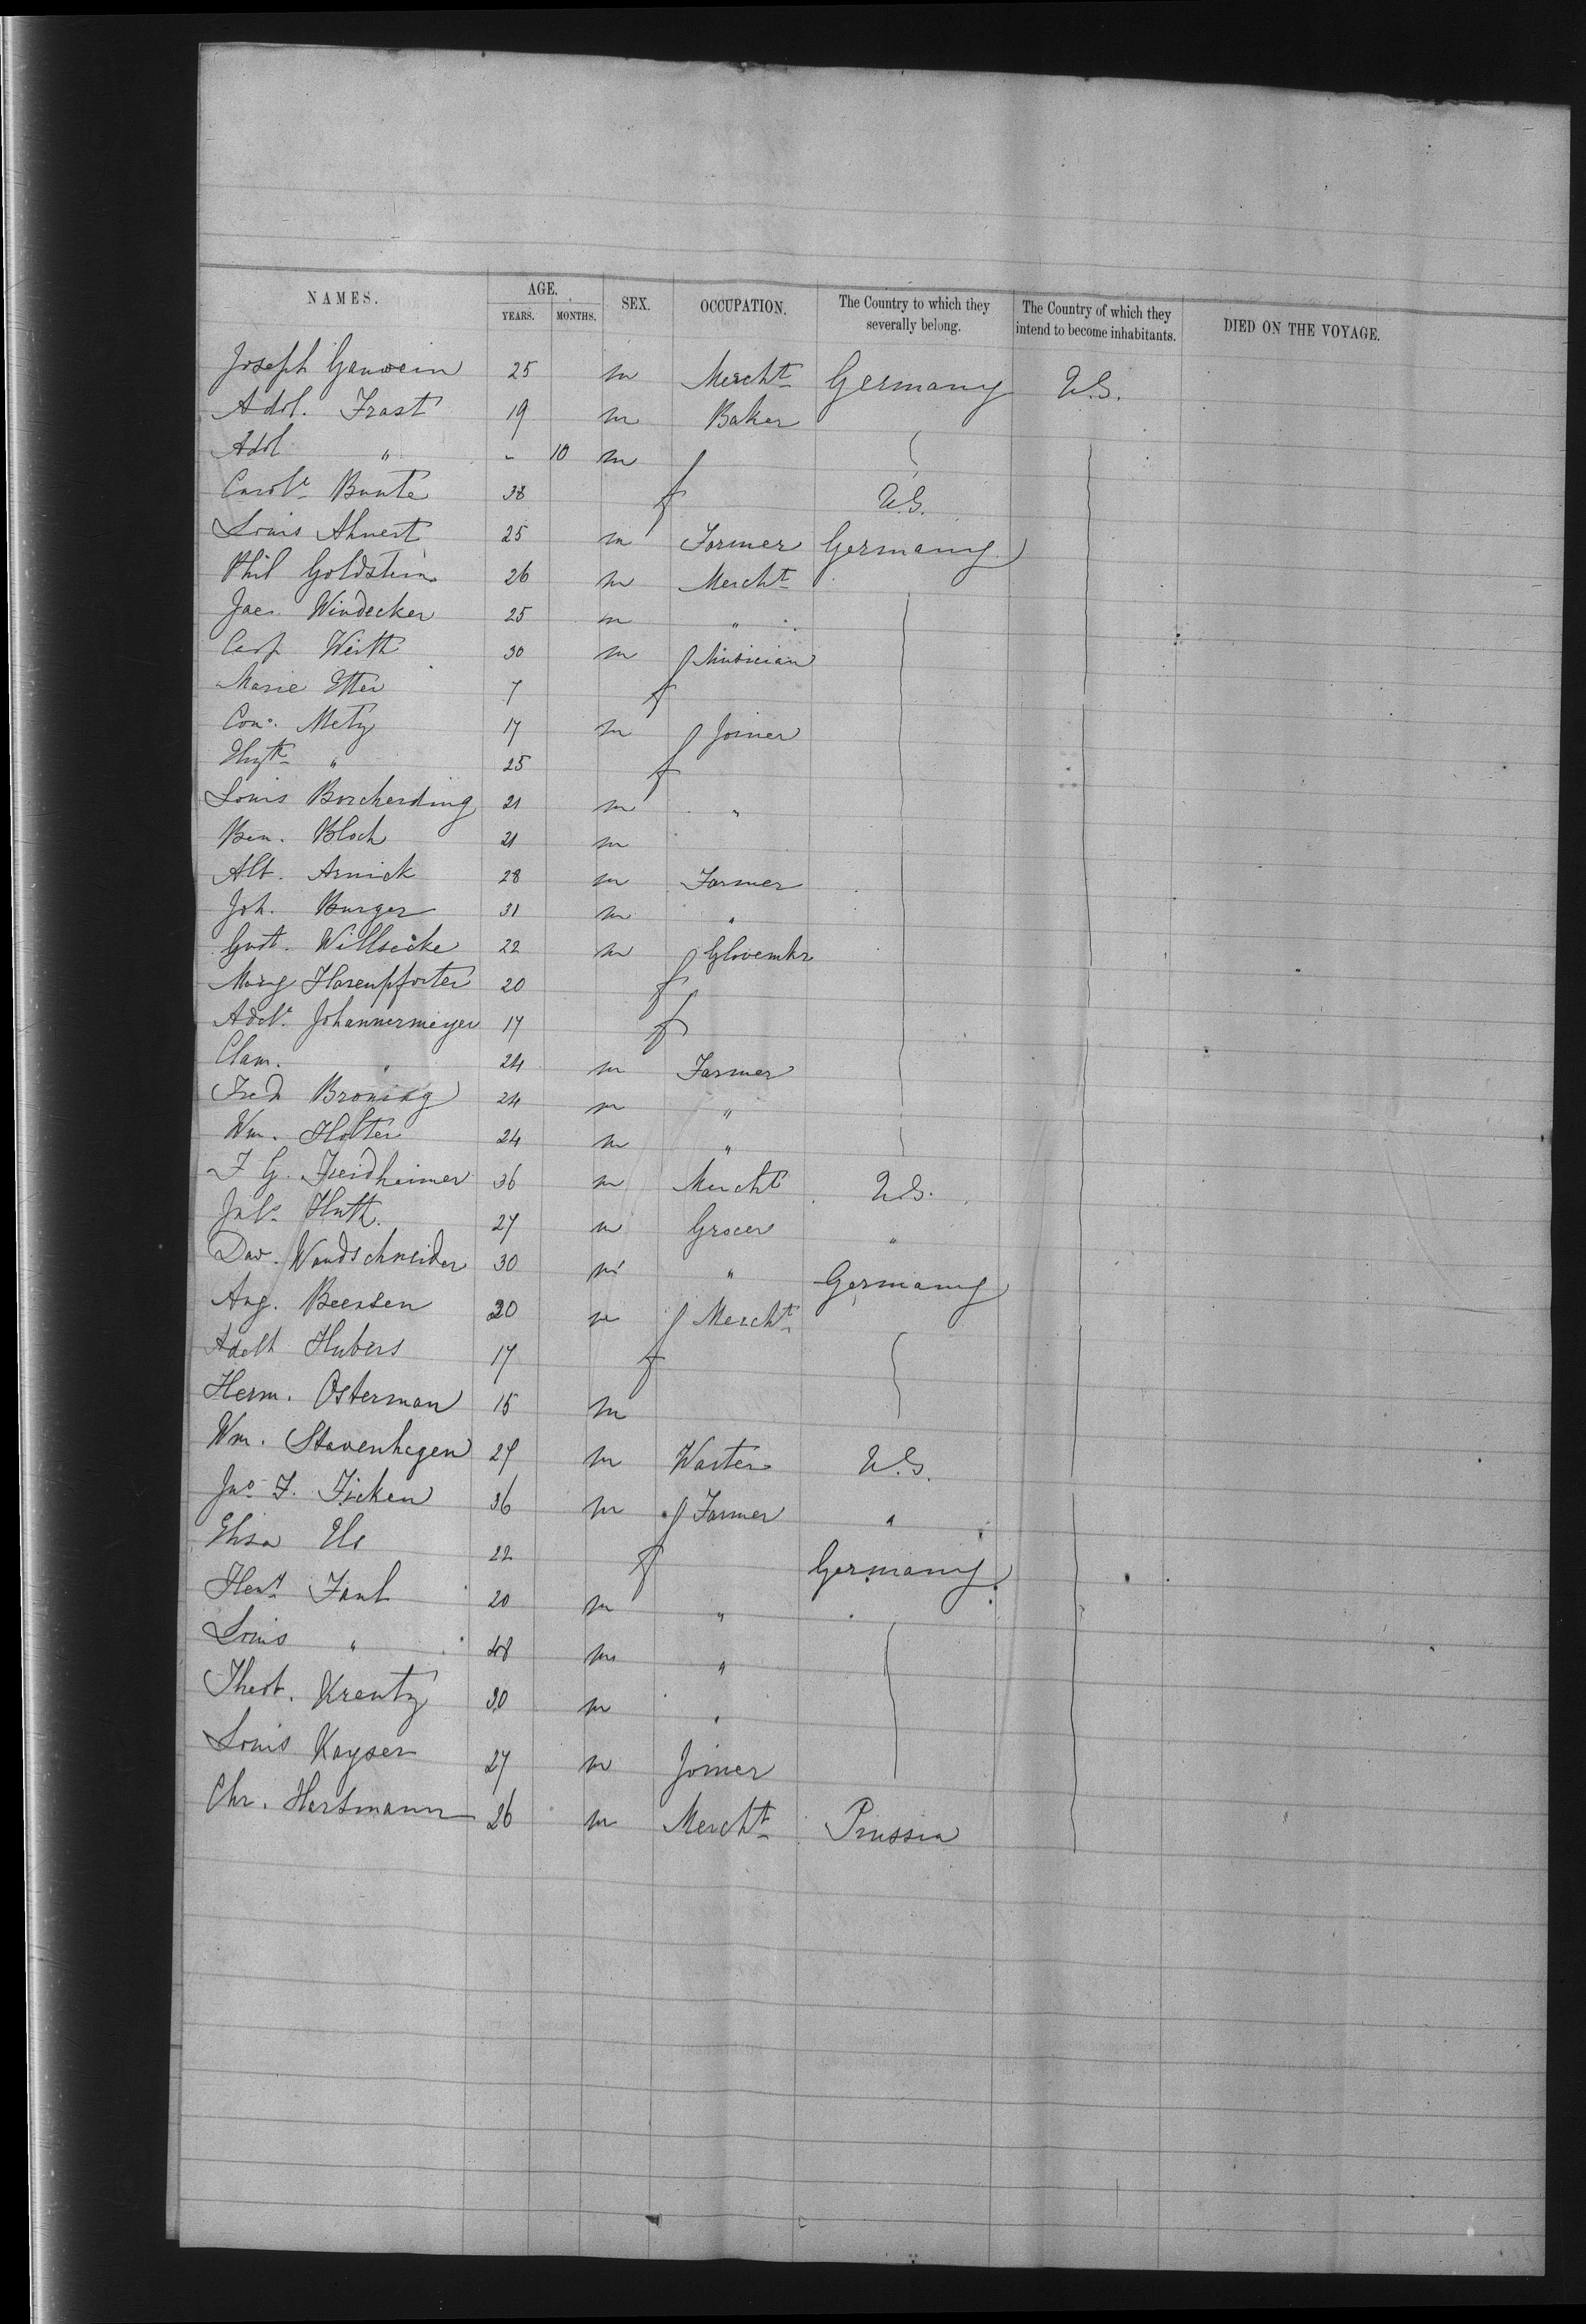 NAMES. AGE. YEARS. MONTHS. SEX. OCCUPATION. The Country to which they severally belong. The Country of which they intend to become inhabitants. DIED ON THE VOYAGE.
Joseph Gauwein 25 m Mercht Germany U.S.
Adol. Frast 19 m Baker
Adol " - 10 m
Carole Bunte 38 f U.S.
Louis Ahnert 25 m Farmer Germany
Phil Goldstein 26 m Mercht
Jac. Windecker 25 m "
Casp Weith 30 m Musician
Marie Etter 7 f
Con. Metz 17 m Joiner
" 25 f
Louis Borcherding 21 m "
Ben. Bloch 21 m
Alb. Arnick 28 m Farmer
Joh. Burger 31 m "
Gust. Willsecke 22 m Glovemkr
Marg Hasenpforter 20 f
Adel. Johannermeyer 17 f
Clam. " 24 m Farmer
Fred Broning 24 m "
Wm. Holter 24 m "
F G. Freidheimer 36 m Mercht U.S.
Huth 27 m Grocer "
Dav. Wandschneider 30 m " Germany
Aug. Beensen 20 m Mercht
Adelh Hubers 17 f
Herm. Osterman 15 m
Wm. Stavenhagen 27 m Waiter U.S.
Jno F. Ficken 36 m Farmer "
Elisa Els 22 f Germany
Heny Faul 20 m "
Louis " 48 m "
Theob. Kreutz 30 m "
Louis Kayser 27 m Joiner
Chr. Hartmann 26 m Mercht Prussia